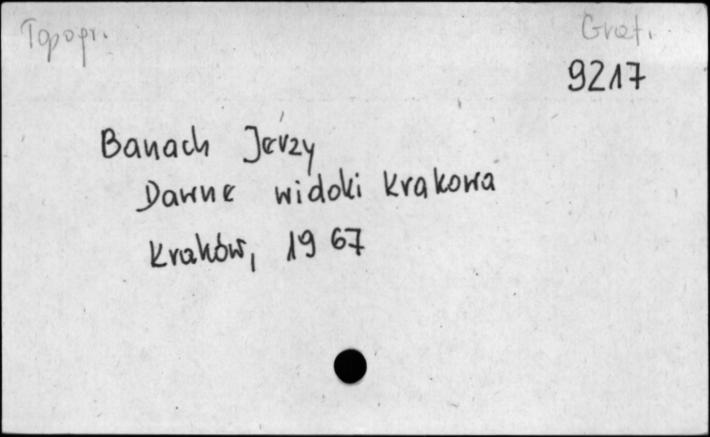 Topogr.
Graf.
9217
Banach Jerzy
Dawne widoki Krakowa
Kraków, 1967